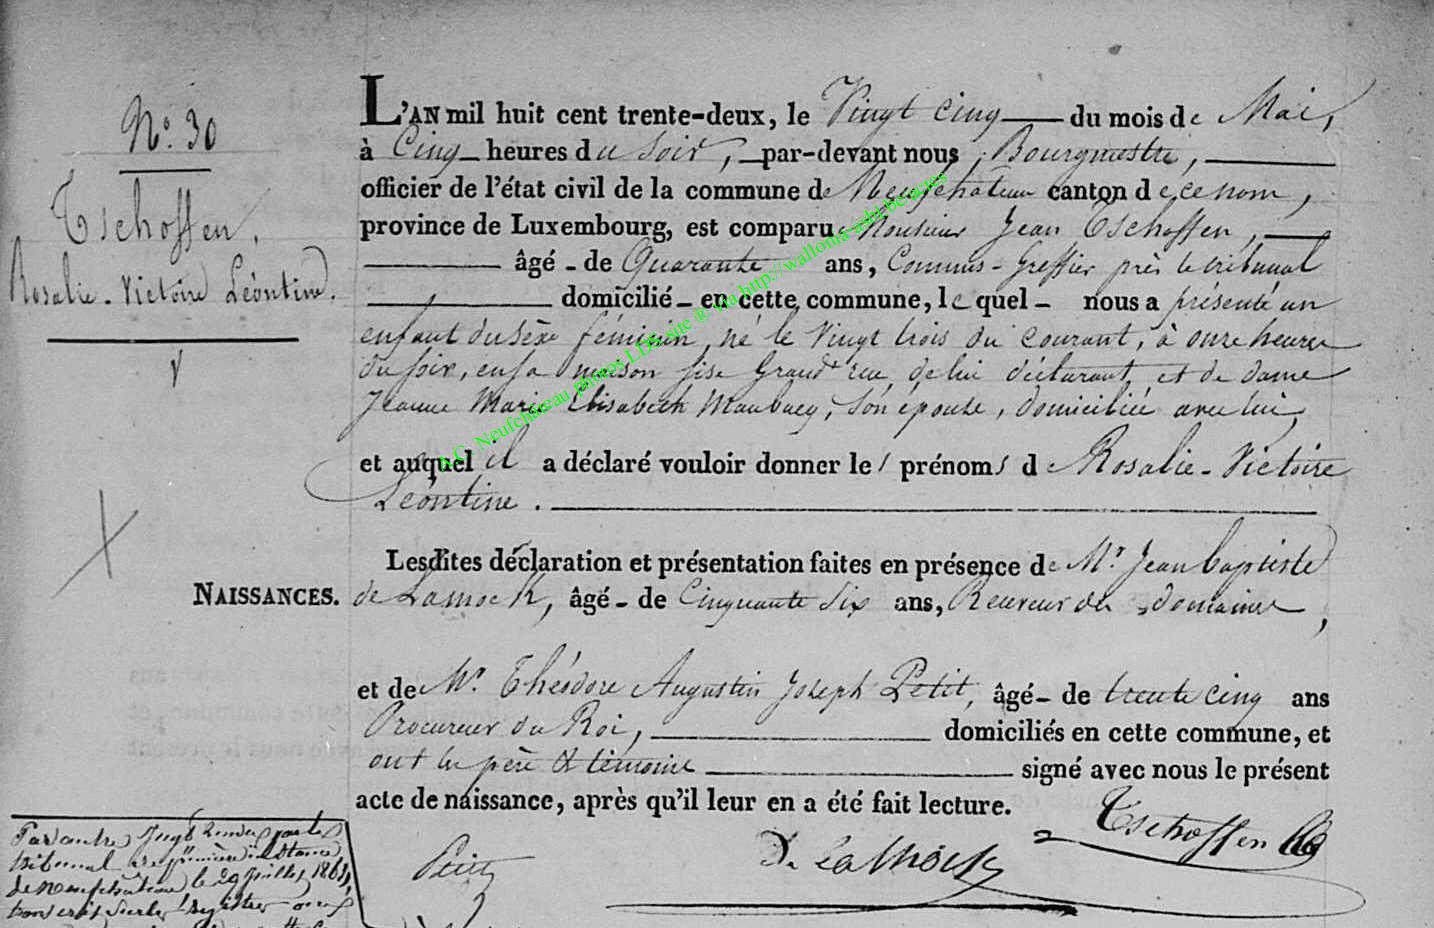 N.o 30
Tschoffen.
Rosalie-Victoire Léontine.
L'AN mil huit cent trente-deux, le Vingt cinq du mois de Mai,
à Cinq heures du soir, par-devant nous Bourgmestre,
officier de l'état civil de la commune de Neufchâteau canton de ce nom,
province de Luxembourg, est comparu Monsieur Jean Tschoffen,
âgé de Quarante ans, Commis-Greffier près le tribunal
domicilié en cette commune, lequel nous a présenté un
enfant du sèxe féminin, né le Vingt trois du courant, à onze heures
du soir, en sa maison sise Grand rue, de lui déclarant, et de dame
Jeanne Marie Elisabeth Maubacq, son épouse, domiciliée avec lui,
et auquel il a déclaré vouloir donner les prénoms de Rosalie-Victoire
Léontine.
Lesdites déclaration et présentation faites en présence de Mr. Jean Baptiste
NAISSANCES.
de Lamock, âgé de Cinquante Six ans, Receveur des domaines,
et de Mr. Théodore Augustin Joseph Petit, âgé de trente cinq ans
Procureur du Roi, domiciliés en cette commune, et
ont les père & témoins signé avec nous le présent
acte de naissance, après qu'il leur en a été fait lecture.
Tschoffen
De Lamock
Petit
Par autre Jugt rendu par le
tribunal de première instance
de Neufchâteau le 29 juillet 1864,
transcrit sur les registres
A.C. Neufchâteau photos LDS site ® via http://wallonia-asbl.be/actes